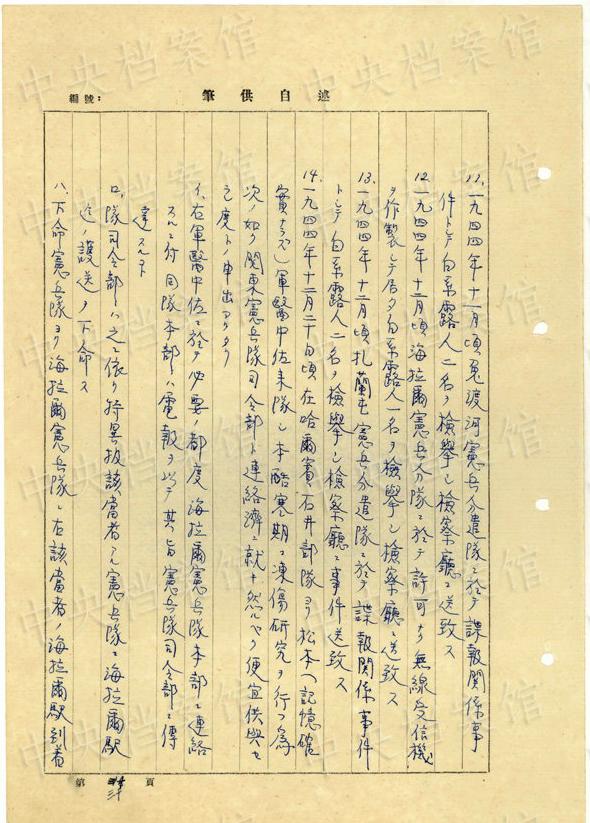 編號：
筆供自述
11.一九四四年十一月頃免渡河憲兵分遣隊ニ於テ諜報関係事
件トシテ白系露人二名ヲ檢擧シ檢察廳ニ送致ス
12.一九四四年十二月頃海拉爾憲兵分隊ニ於テ許可ナク無線受信機
ヲ作製シテ居タ白系露人一名ヲ檢擧シ檢察廳ニ送致ス
13.一九四四年十二月頃扎蘭屯憲兵分遣隊ニ於テ諜報関係事件
トシテ白系露人二名ヲ檢擧シ檢察廳ニ事件送致ス
14.一九四四年十二月二十日頃在哈爾賓石井部隊ヨリ松本(記憶確
實ナラズ)軍醫中佐来隊シ本酷寒期ニ凍傷研究ヲ行フ為
次ノ如ク関東憲兵隊司令部ト連絡濟ニ就キ然ルベク便宜供與セ
ラレ度トノ申出アリタリ
イ、右軍醫中佐ニ於テ必要ノ都度海拉爾憲兵隊本部ニ連絡
スルニ付同隊本部ハ電報ヲ以テ其旨憲兵隊司令部ニ傳
達スルコト
ロ、隊司令部ハ之ニ依リ特異扱該當者アル憲兵隊ニ海拉爾駅
迄ノ護送ヲ下命ス
ハ、下命憲兵隊ヨリ海拉爾憲兵隊ニ右該當者ノ海拉爾駅到着
第 頁
中央档案馆